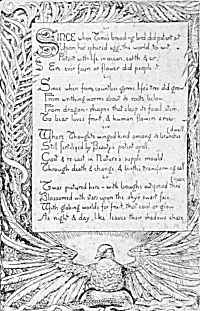 SINCE when Time's brooding bird did patient sit
Upon her sphered egg, the world, to wit,
Patient with life in ocean, earth, & air,
Ere ever fawn or flower did people it
Since when from countless germs life's tree did grow
From writhing worms about its roots below,
From dragon-shapes that clasp its fossil stem,
To bear loves fruit, & human flowers
Where Thoughts winged kind among its branches dwell
Still fertilised by Beauty's potent spell
Cast & re cast in Nature's supple mould,
Through death & change, & births transforming
'Twas pictured here - with boughs outspread
Blossomed with stars upon the sky's swart face
With glowing worlds for fruit, that cool or glow
As night & day, like leaves their shadows